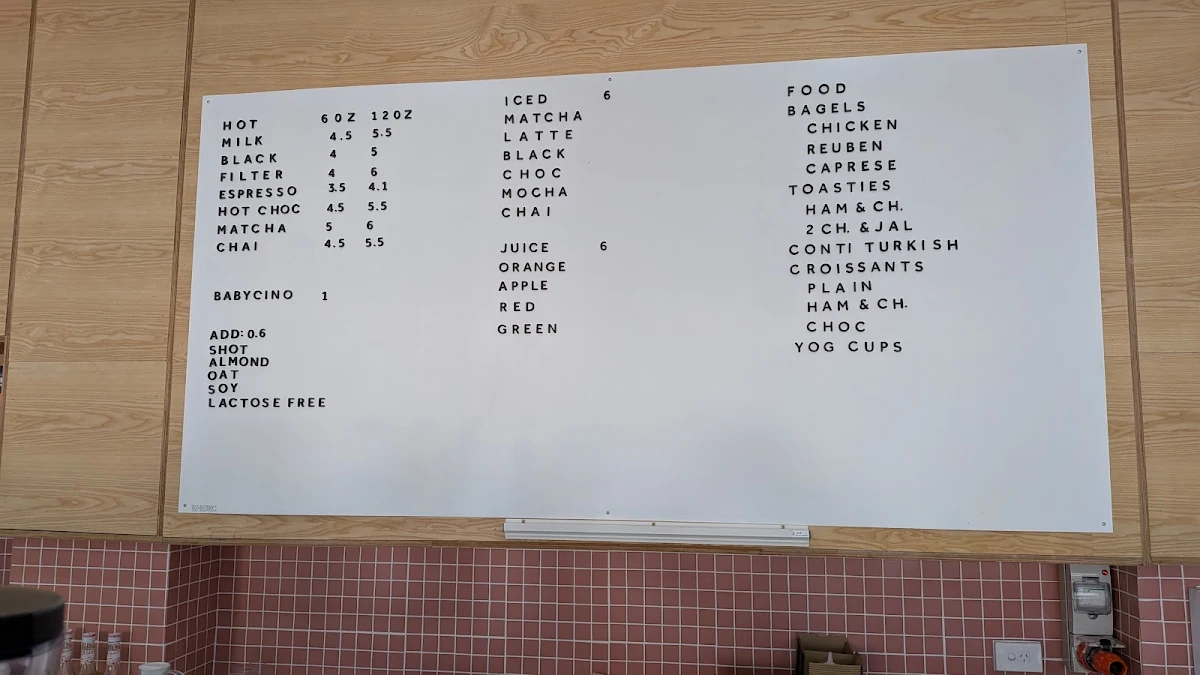 HOT 6OZ 12OZ
MILK 4.5 5.5
BLACK 4 5
FILTER 4 6
ESPRESSO 3.5 4.1
HOT CHOC 4.5 5.5
MATCHA 5 6
CHAI 4.5 5.5
BABYCINO 1
ADD: 0.6
SHOT
ALMOND
OAT
SOY
LACTOSE FREE
ICED 6
MATCHA
LATTE
BLACK
CHOC
MOCHA
CHAI
JUICE 6
ORANGE
APPLE
RED
GREEN
FOOD
BAGELS
CHICKEN
REUBEN
CAPRESE
TOASTIES
HAM & CH.
2 CH. & JAL
CONTI TURKISH
CROISSANTS
PLAIN
HAM & CH.
CHOC
YOG CUPS